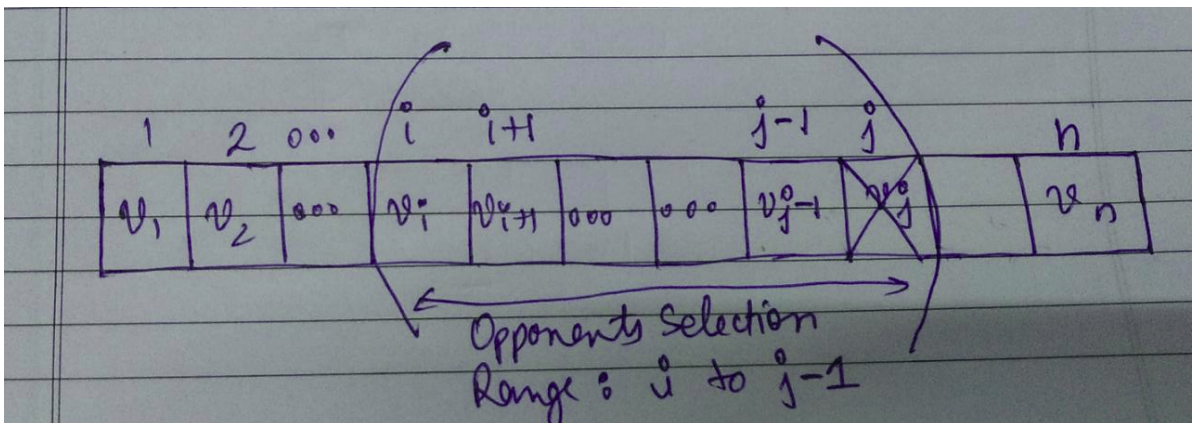 1 2 ooo i i+1 j-1 j n
v1 v2 ooo vi vi+1 ooo ooo vj-1 vj vn
Opponents Selection
Range : i to j-1